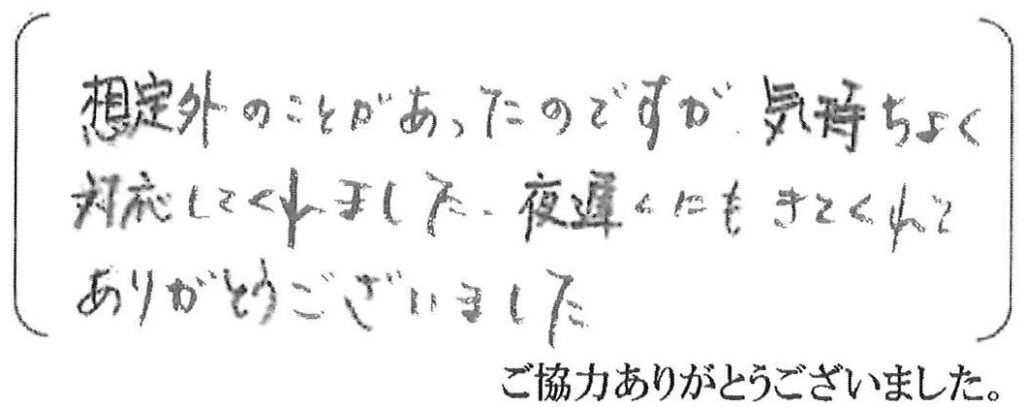 想定外のことがあったのですが、気持ちよく
対応してくれました。夜遅くにもきてくれて
ありがとうございました
ご協力ありがとうございました。